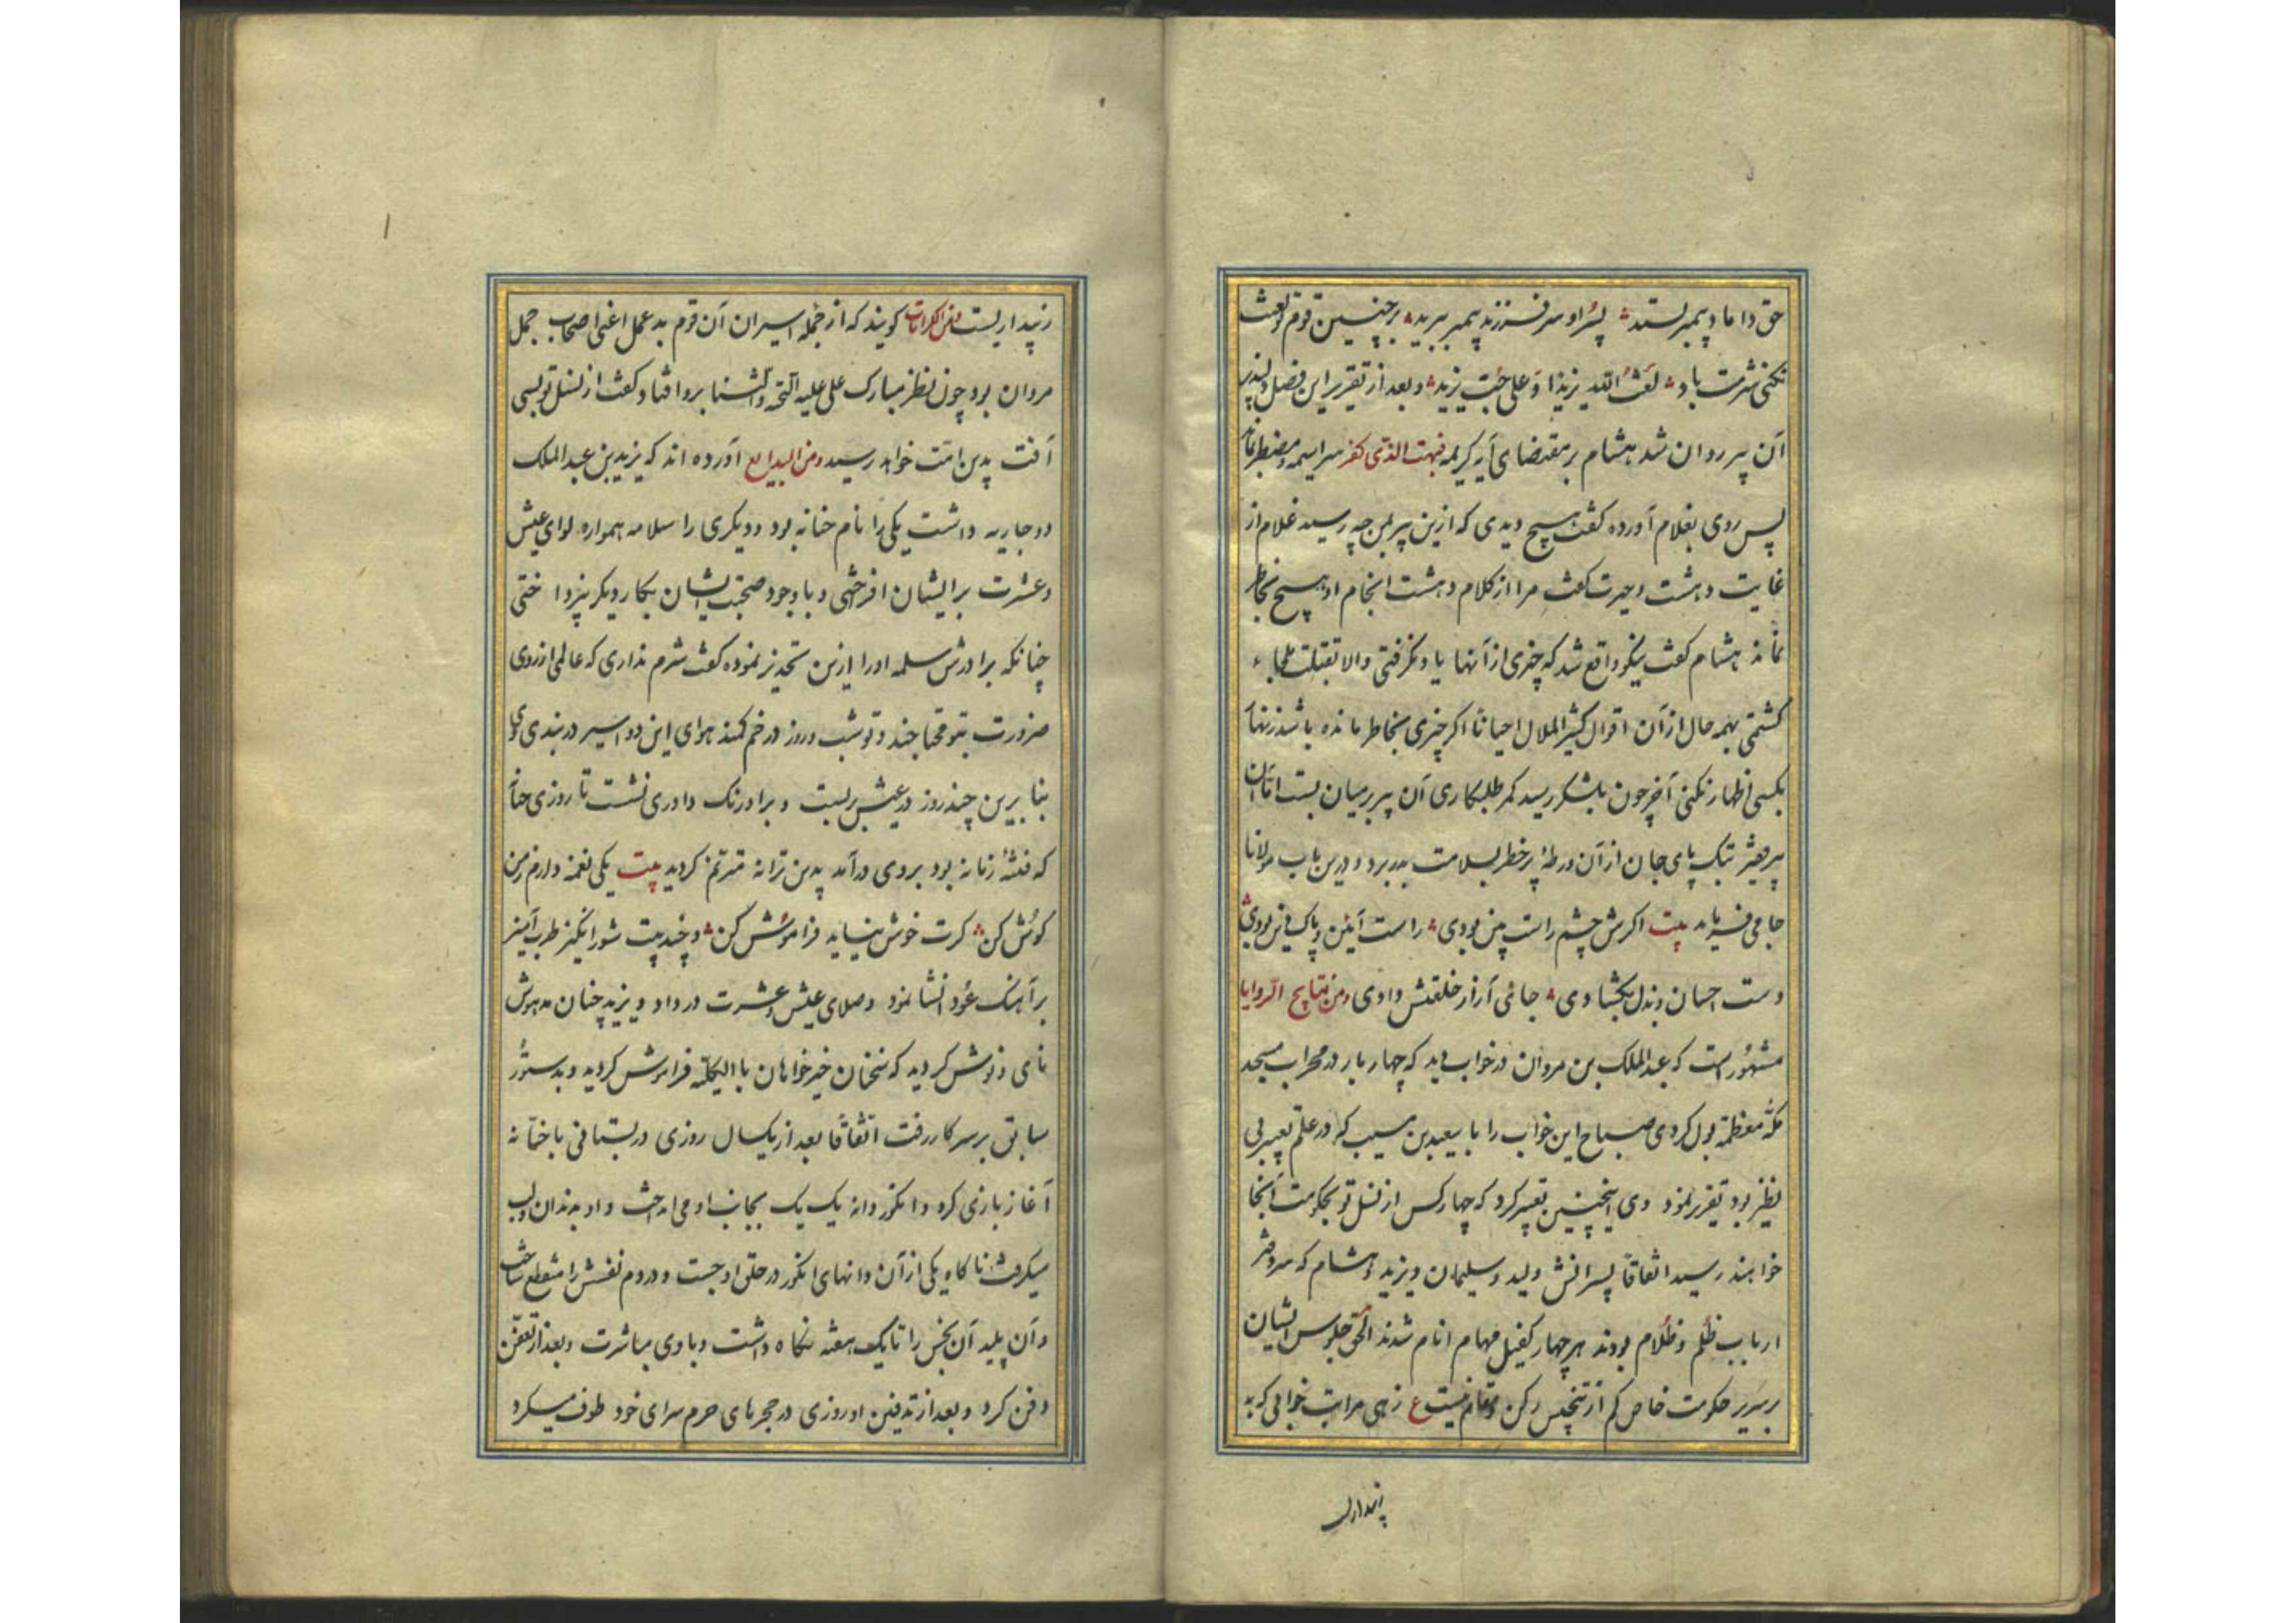 حق داماد پیمبر بستد ؞ پسر او سر فرزند پیمبر ببرید ؞ بر چنین قوم تو لعنت
نکنی شرمت باد ؞ لعن الله یزیدا و علی حب یزید ؞ و بعد از تقریر این فصل دلپذیر
آن پیر روان شد هشام بر مقتضای آیه کریمه فبهت الذی کفر سراسیمه و مضطر بماند
پس روی بغلام آورده کفت هیچ دیدی که ازین پیر بمن چه رسید غلام از
غایت دهشت و حیرت کفت مرا از کلام دهشت انجام او هیچ بخاطر
نماند هشام کفت نیکو واقع شد که چیزی از آنها یاد نکرفتی والا بقتلت
کشتمی بهمه حال از آن اقوال کثیر الملال احیانا اکر چیزی بخاطر مانده باشد زنهار
بکسی اظهار نکنی آخر چون بلشکر رسید کمر طلبکاری آن پیر بر میان بست اما آن
پیر بتک پای جان از آن ورطه پر خطر بسلامت بدر برد و درین باب مولانا
جامی فرماید بیت اکرش چشم راست بین بودی ؞ راست آیین و پاک دین بودی
دست احسان و بذل بکشادی ؞ جای آزار خلعتش دادی و من نتایج الروایا
مشهور است که عبد الملک بن مروان در خواب دید که چهار بار در محراب مسجد
مکه معظمه بول کردی صباح این خواب را با سعید بن مسیب که در علم تعبیر بی
نظیر بود تقریر نمود وی اینچنین تعبیر کرد که چهار کس از نسل تو بحکومت آنجا
خواهند رسید اتفاقا پسرانش ولید و سلیمان و یزید و هشام که سر دفتر
ارباب ظلم و ظلام بودند هر چهار کفیل مهام انام شدند الحق جلوس ایشان
بر سریر حکومت خاص کم از تنجیس رکن و مقام نیست ع زهی مراتب خوابی که به
زبیداریست و من الکرامات کویند که از جمله اسیران آن قوم بد عمل اعنی اصحاب جمل
مروان بود چون نظر مبارک علی علیه التحیه والثنا برو افتاد کفت از نسل تو بسی
آفت بدین امت خواهد رسید و من البدایع آورده اند که یزید بن عبد الملک
دو جاریه داشت یکی را نام حنانه بود و دیکری را سلامه همواره لوای عیش
و عشرت با ایشان افراختی و با وجود صحبت ایشان بکار دیکر نپرداختی
چنانکه برادرش سلمه او را ازین تحذیر نموده کفت شرم نداری که عالمی از روی
ضرورت بتو محتاجند و تو شب و روز در خم کمند هوای این دو اسیر در بندی وی
بنا برین چند روز در عیش بربست و بر اورنک داوری نشست تا روزی حنانه
که فتنه زمانه بود بروی درآمد بدین ترانه مترنم کردید بیت یکی نغمه دارم ز من
کوش کن ؞ کرت خوش نیاید فراموش کن ؞ و چند بیت شور انکیز طرب آمیز
بر آهنک عود انشا نمود و صلای عیش و عشرت در داد و یزید چنان مدهوش
نای و نوش کردید که سخنان خیرخواهان بالکلیه فراموش کردید و بدستور
سابق بر سر کار رفت اتفاقا بعد از یکسال روزی در بستانی با حنانه
آغاز بازی کرد و انکور دانه یک یک بجانب او می انداخت و او بدندان و لب
میکرفت ناکاه یکی از آن دانهای انکور در حلق او جست و در دم نفسش را منقطع ساخت
و آن پلید آن نجس را تا یک هفته نکاه داشت و با وی مباشرت و بعد از تعفن
دفن کرد و بعد از تدفین او روزی در حجرهای حرم سرای خود طوف میکرد